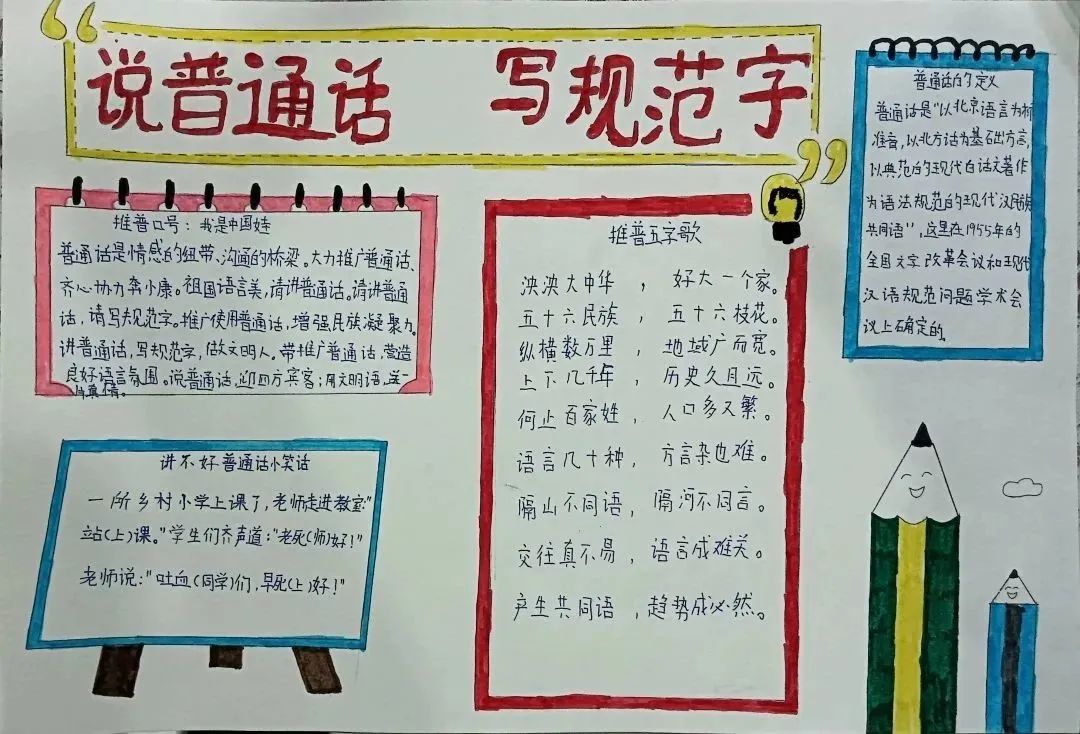 说普通话 写规范字
推普口号：我是中国娃
普通话是情感的纽带、沟通的桥梁。大力推广普通话、
齐心协力奔小康。祖国语言美，请讲普通话。请讲普通
话，请写规范字。推广使用普通话，增强民族凝聚力。
讲普通话，写规范字，做文明人。带推广普通话，营造
良好语言氛围。说普通话，迎四方宾客；用文明语，送一
片真情。
讲不好普通话小笑话
一所乡村小学上课了，老师走进教室："
站(上)课。"学生们齐声道："老死(师)好！"
老师说："吐血(同学)们，早死(上)好！"
推普五字歌
泱泱大中华，好大一个家。
五十六民族，五十六枝花。
纵横数万里，地域广而宽。
上下几千年，历史久且远。
何止百家姓，人口多又繁。
语言几十种，方言杂也难。
隔山不同语，隔河不同言。
交往真不易，语言成难关。
产生共同语，趋势成必然。
普通话的定义
普通话是"以北京语言为标
准音，以北方话为基础方言，
以典范的现代白话文著作
为语法规范的现代汉民族
共同语"，这里在1955年的
全国文字改革会议和现代
汉语规范问题学术会
议上确定的。